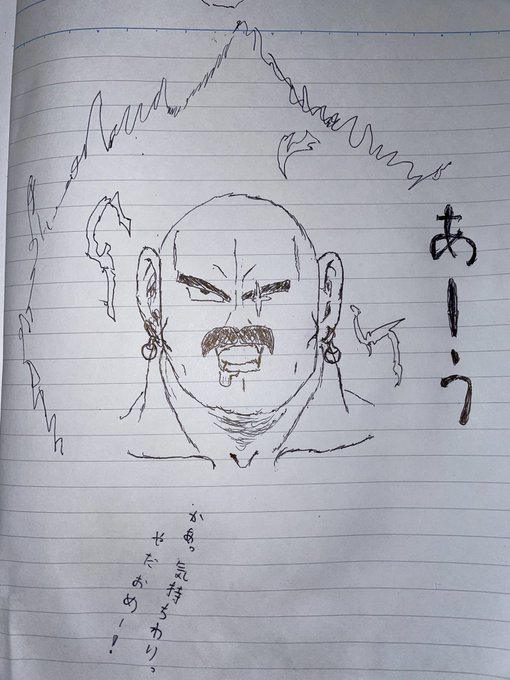 あーう
かあっ気持ちわりっ
やだおめー！